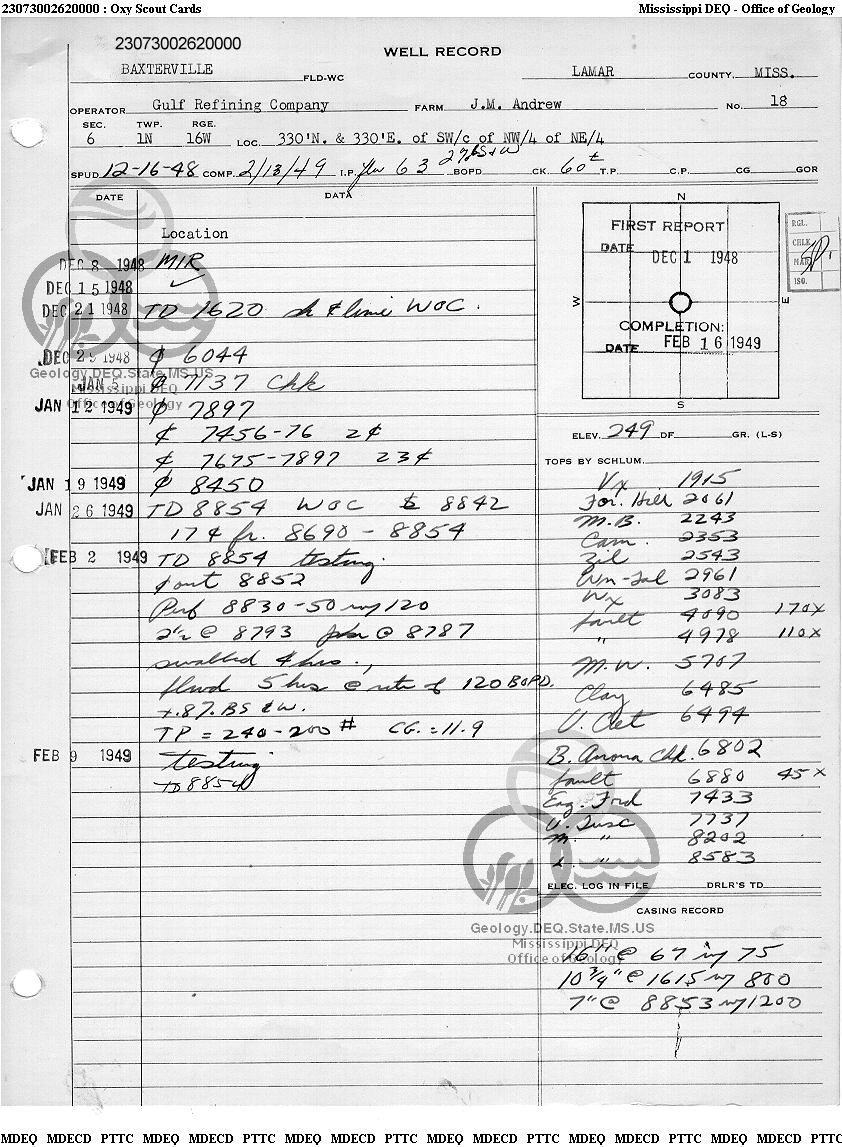 23073002620000 : Oxy Scout Cards Mississippi DEQ - Office of Geology
23073002620000
WELL RECORD
BAXTERVILLE FLD-WC LAMAR COUNTY, MISS.
OPERATOR Gulf Refining Company FARM J.M. Andrew No. 18
SEC. TWP. RGE.
6 1N 16W LOC. 330'N. & 330'E. of SW/c of NW/4 of NE/4
SPUD 12-16-48 COMP. 2/13/49 I.P. flw 63 BOPD CK. 60 T.P. C.P. CG GOR
DATE DATA
Location
DEC 8 1948 MIR
DEC 15 1948
DEC 21 1948 TD 1620 sh & lime WOC.
DEC 29 1948 ₵ 6044
JAN 5 ₵ 7137 Chk
JAN 12 1949 ₵ 7897
₵ 7456-76 2₵
₵ 7675-7897 23₵
JAN 19 1949 ₵ 8450
JAN 26 1949 TD 8854 WOC 8842
17₵ fr. 8690 - 8854
FEB 2 1949 TD 8854 testing.
₵ out 8852
Perf 8830-50 w/120
2½ @ 8793 pkr @ 8787
swabbed 4 hrs.,
flwd 5 hrs @ rate of 120 BOPD.
+.8% BS & W.
TP = 240-200 # CG. = 11.9
FEB 9 1949 testing
TD 8854
N
FIRST REPORT
DATE DEC 1 1948
W E
COMPLETION:
DATE FEB 16 1949
S
RGL.
CHLK
MAR
ISO.
ELEV. 249 DF GR. (L-S)
TOPS BY SCHLUM.
Vx 1915
For. Hill 2061
M.B. 2243
Cam. 2353
Zil 2543
Wn-Sal 2961
Wx 3083
fault 4090 170x
" 4978 110x
M.W. 5707
Clay 6485
U. Cret 6494
B. Anona Chk. 6802
fault 6880 45x
Eag. Ford 7433
U. Tusc 7737
M. " 8202
L. " 8583
ELEC. LOG IN FILE DRLR'S TD
CASING RECORD
16" @ 67 w/ 75
10 3/4" @ 1615 w/ 800
7" @ 8853 w/1200
Geology.DEQ.State.MS.US
Mississippi DEQ
Office of Geology
Geology.DEQ.State.MS.US
Mississippi DEQ
Office of Geology
MDEQ MDECD PTTC MDEQ MDECD PTTC MDEQ MDECD PTTC MDEQ MDECD PTTC MDEQ MDECD PTTC MDEQ MDECD PTTC